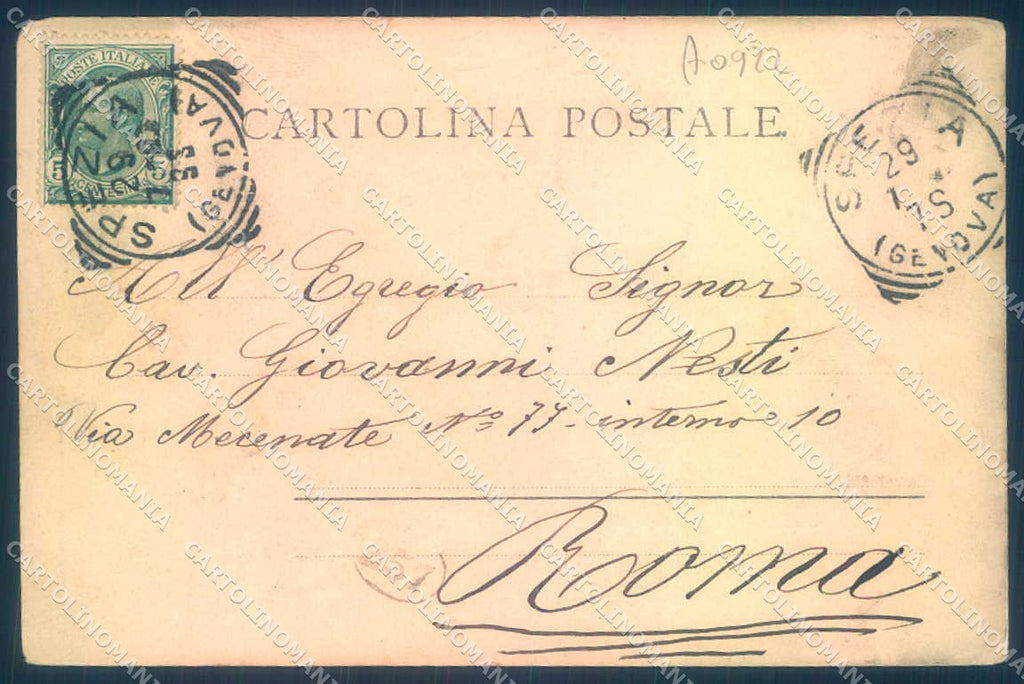 A0912
POSTE ITALIANE
5 5
CENT
SPEZIA
(GENOVA)
CARTOLINA POSTALE.
SPEZIA
29
(GENOVA)
All' Egregio Signor
Cav. Giovanni Nesti
Via Mecenate Nº 77 - interno 10
Roma
CARTOLINOMANIA